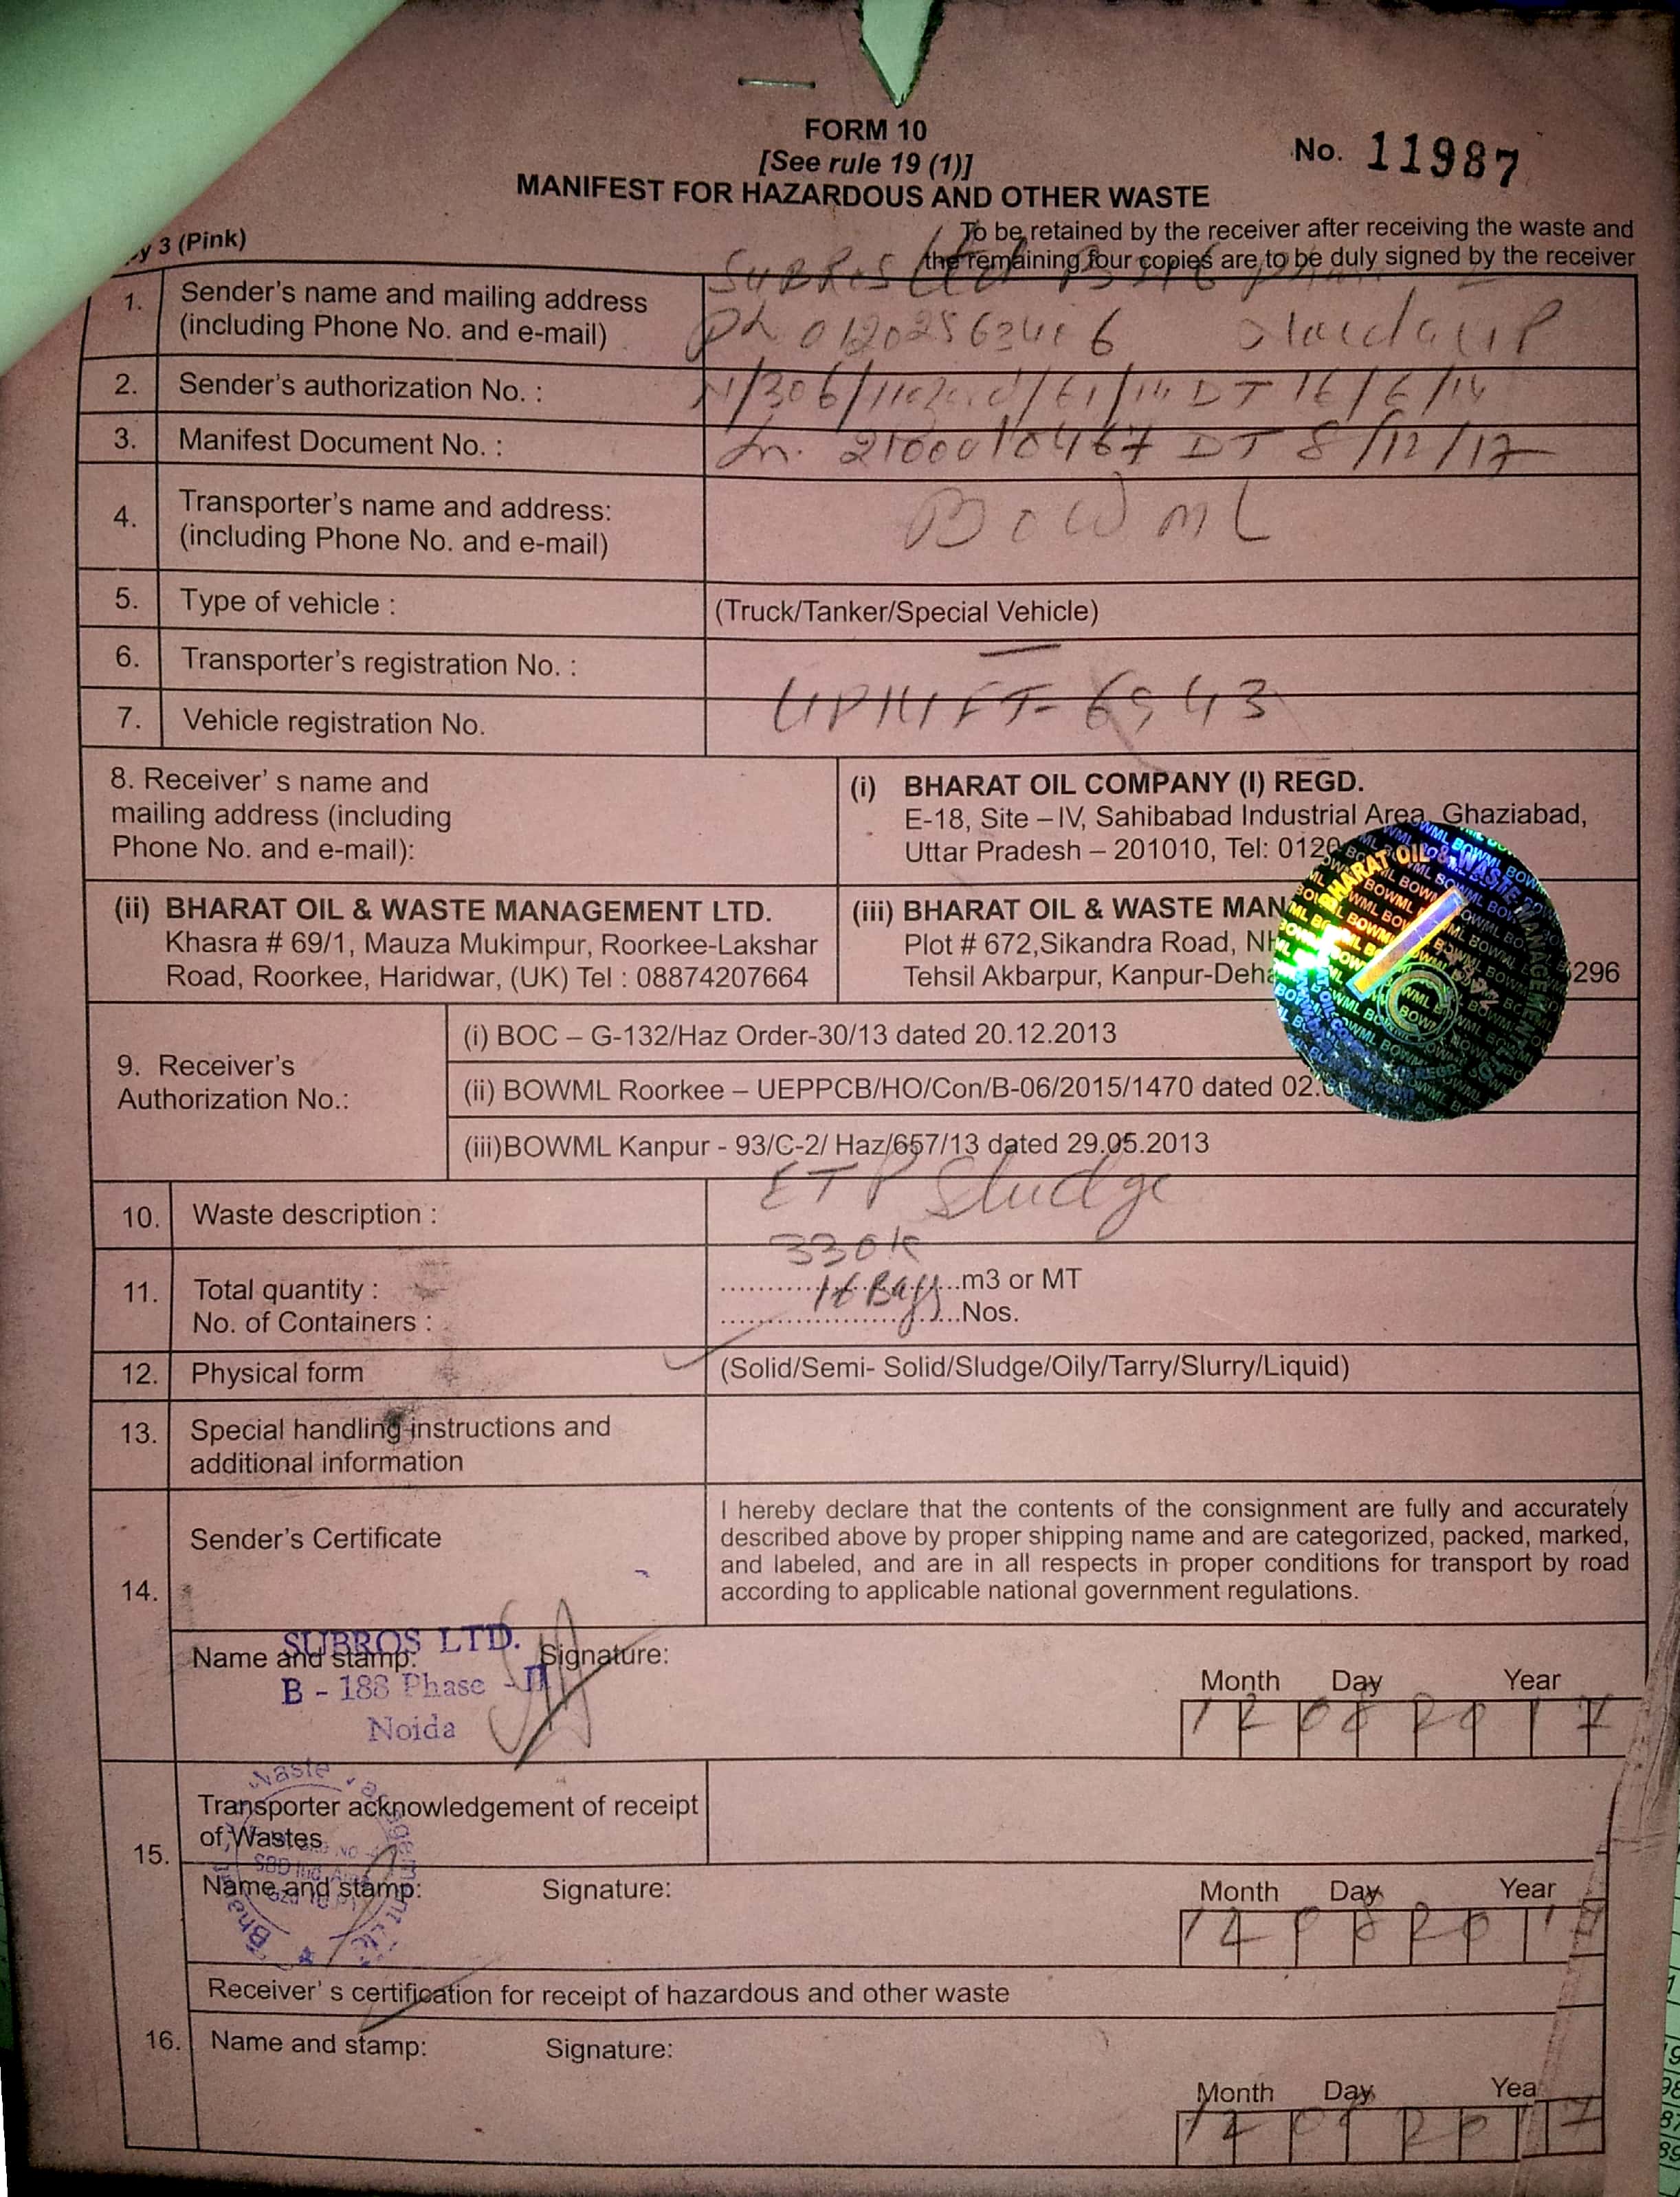 FORM 10
[See rule 19 (1)]
No. 11987
MANIFEST FOR HAZARDOUS AND OTHER WASTE
y 3 (Pink)
To be retained by the receiver after receiving the waste and
the remaining four copies are to be duly signed by the receiver
1. Sender's name and mailing address
(including Phone No. and e-mail)
SUBROS Ltd
2. Sender's authorization No. :
DT 16/6/14
3. Manifest Document No. :
DT 8/12/17
4. Transporter's name and address:
(including Phone No. and e-mail)
BOWML
5. Type of vehicle :
(Truck/Tanker/Special Vehicle)
6. Transporter's registration No. :
7. Vehicle registration No.
8. Receiver' s name and
mailing address (including
Phone No. and e-mail):
(i) BHARAT OIL COMPANY (I) REGD.
E-18, Site – IV, Sahibabad Industrial Area, Ghaziabad,
Uttar Pradesh – 201010, Tel: 0120
(ii) BHARAT OIL & WASTE MANAGEMENT LTD.
Khasra # 69/1, Mauza Mukimpur, Roorkee-Lakshar
Road, Roorkee, Haridwar, (UK) Tel : 08874207664
(iii) BHARAT OIL & WASTE MAN
Plot # 672,Sikandra Road, NH
Tehsil Akbarpur, Kanpur-Deha
296
9. Receiver's
Authorization No.:
(i) BOC – G-132/Haz Order-30/13 dated 20.12.2013
(ii) BOWML Roorkee – UEPPCB/HO/Con/B-06/2015/1470 dated 02.
(iii)BOWML Kanpur - 93/C-2/ Haz/657/13 dated 29.05.2013
10. Waste description :
ETP Sludge
11. Total quantity :
330K
m3 or MT
No. of Containers :
Bags
Nos.
12. Physical form
(Solid/Semi- Solid/Sludge/Oily/Tarry/Slurry/Liquid)
13. Special handling instructions and
additional information
14. Sender's Certificate
I hereby declare that the contents of the consignment are fully and accurately
described above by proper shipping name and are categorized, packed, marked,
and labeled, and are in all respects in proper conditions for transport by road
according to applicable national government regulations.
Name and stamp:
Signature:
SUBROS LTD.
B - 188 Phase - II
Noida
Month Day Year
12 08 2017
15. Transporter acknowledgement of receipt
of Wastes
Name and stamp:
Signature:
Month Day Year
12 08 2017
16. Receiver' s certification for receipt of hazardous and other waste
Name and stamp:
Signature:
Month Day Yea